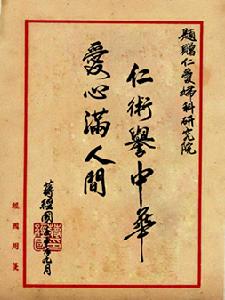 題贈仁愛婦科研究院
仁術譽中華
愛心滿人間
蔣經國
九月
經國用箋